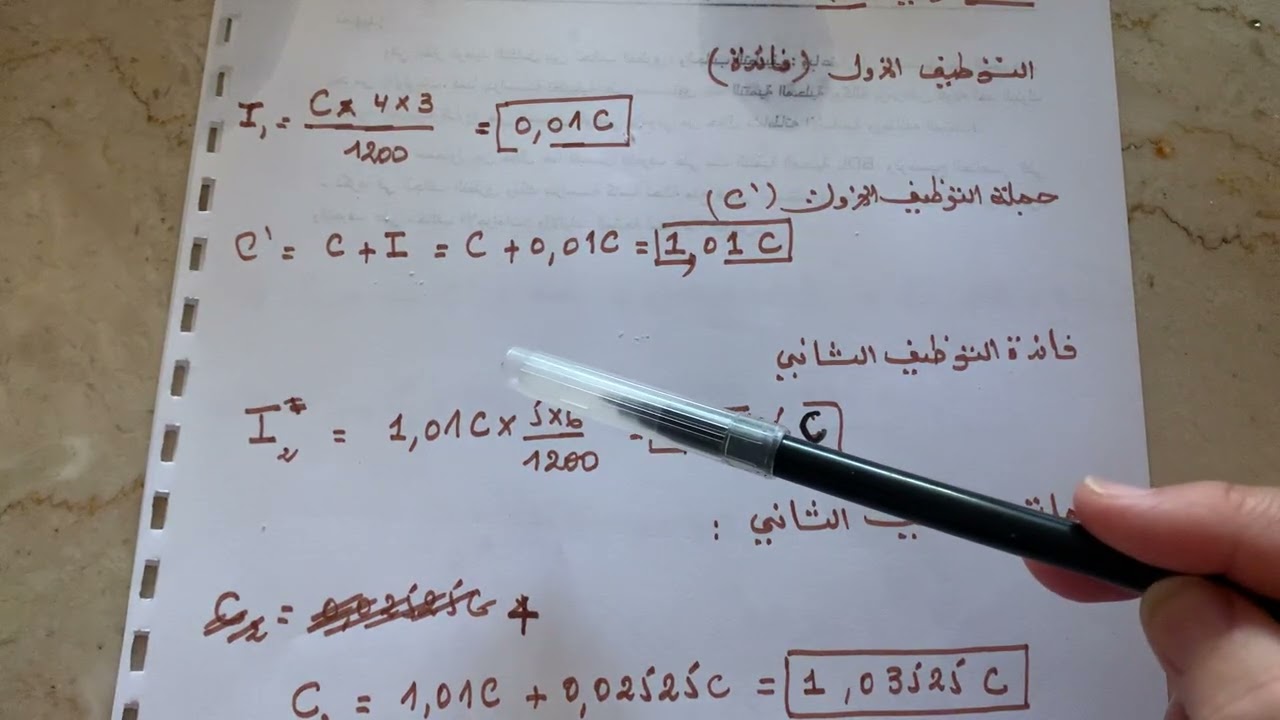 التوظيف الأول (فائدة)
I₁ = C × 4 × 3 / 1200 = 0,01 C
جملة التوظيف الأول (C')
C' = C + I = C + 0,01C = 1,01 C
فائدة التوظيف الثاني
I₂ = 1,01C × 5×6 / 1200 = C
الثاني :
C = 1,01C + 0,02525C = 1,03525 C